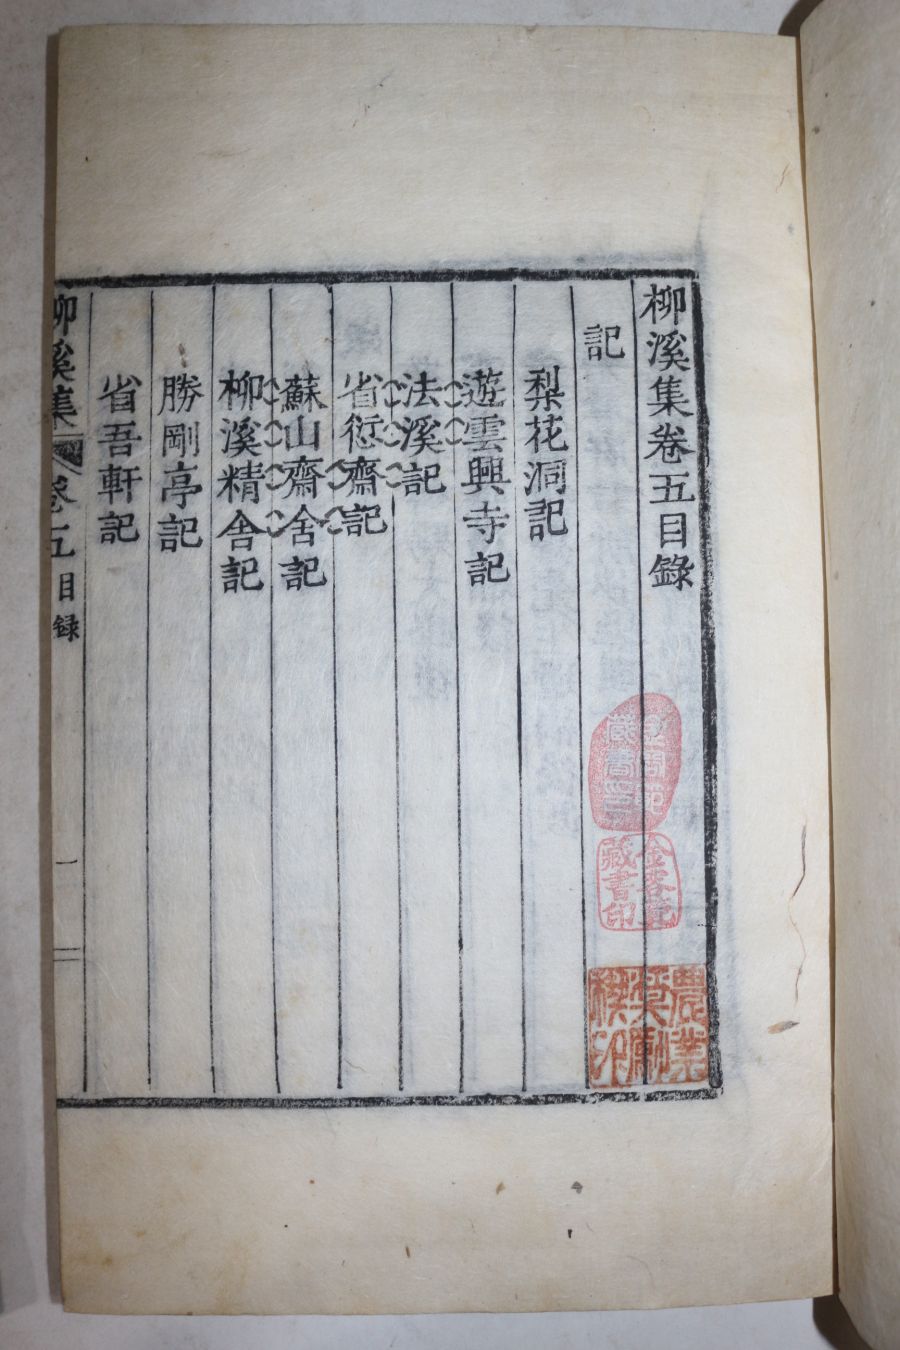 柳溪集卷五目錄
記
梨花洞記
遊雲興寺記
法溪記
省愆齋記
蘇山齋舍記
柳溪精舍記
勝剛亭記
省吾軒記
柳溪集
卷五
目録
一
藏書印
藏書印